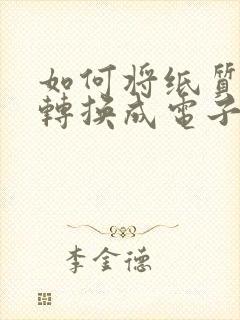 如何将纸質
轉换成電子
李金德